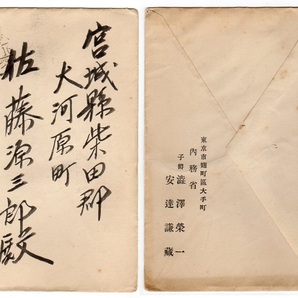 宮城縣柴田郡
大河原町
佐藤源三郎殿
東京市麹町區大手町
內務省
子爵 澁澤榮一
安達謙藏